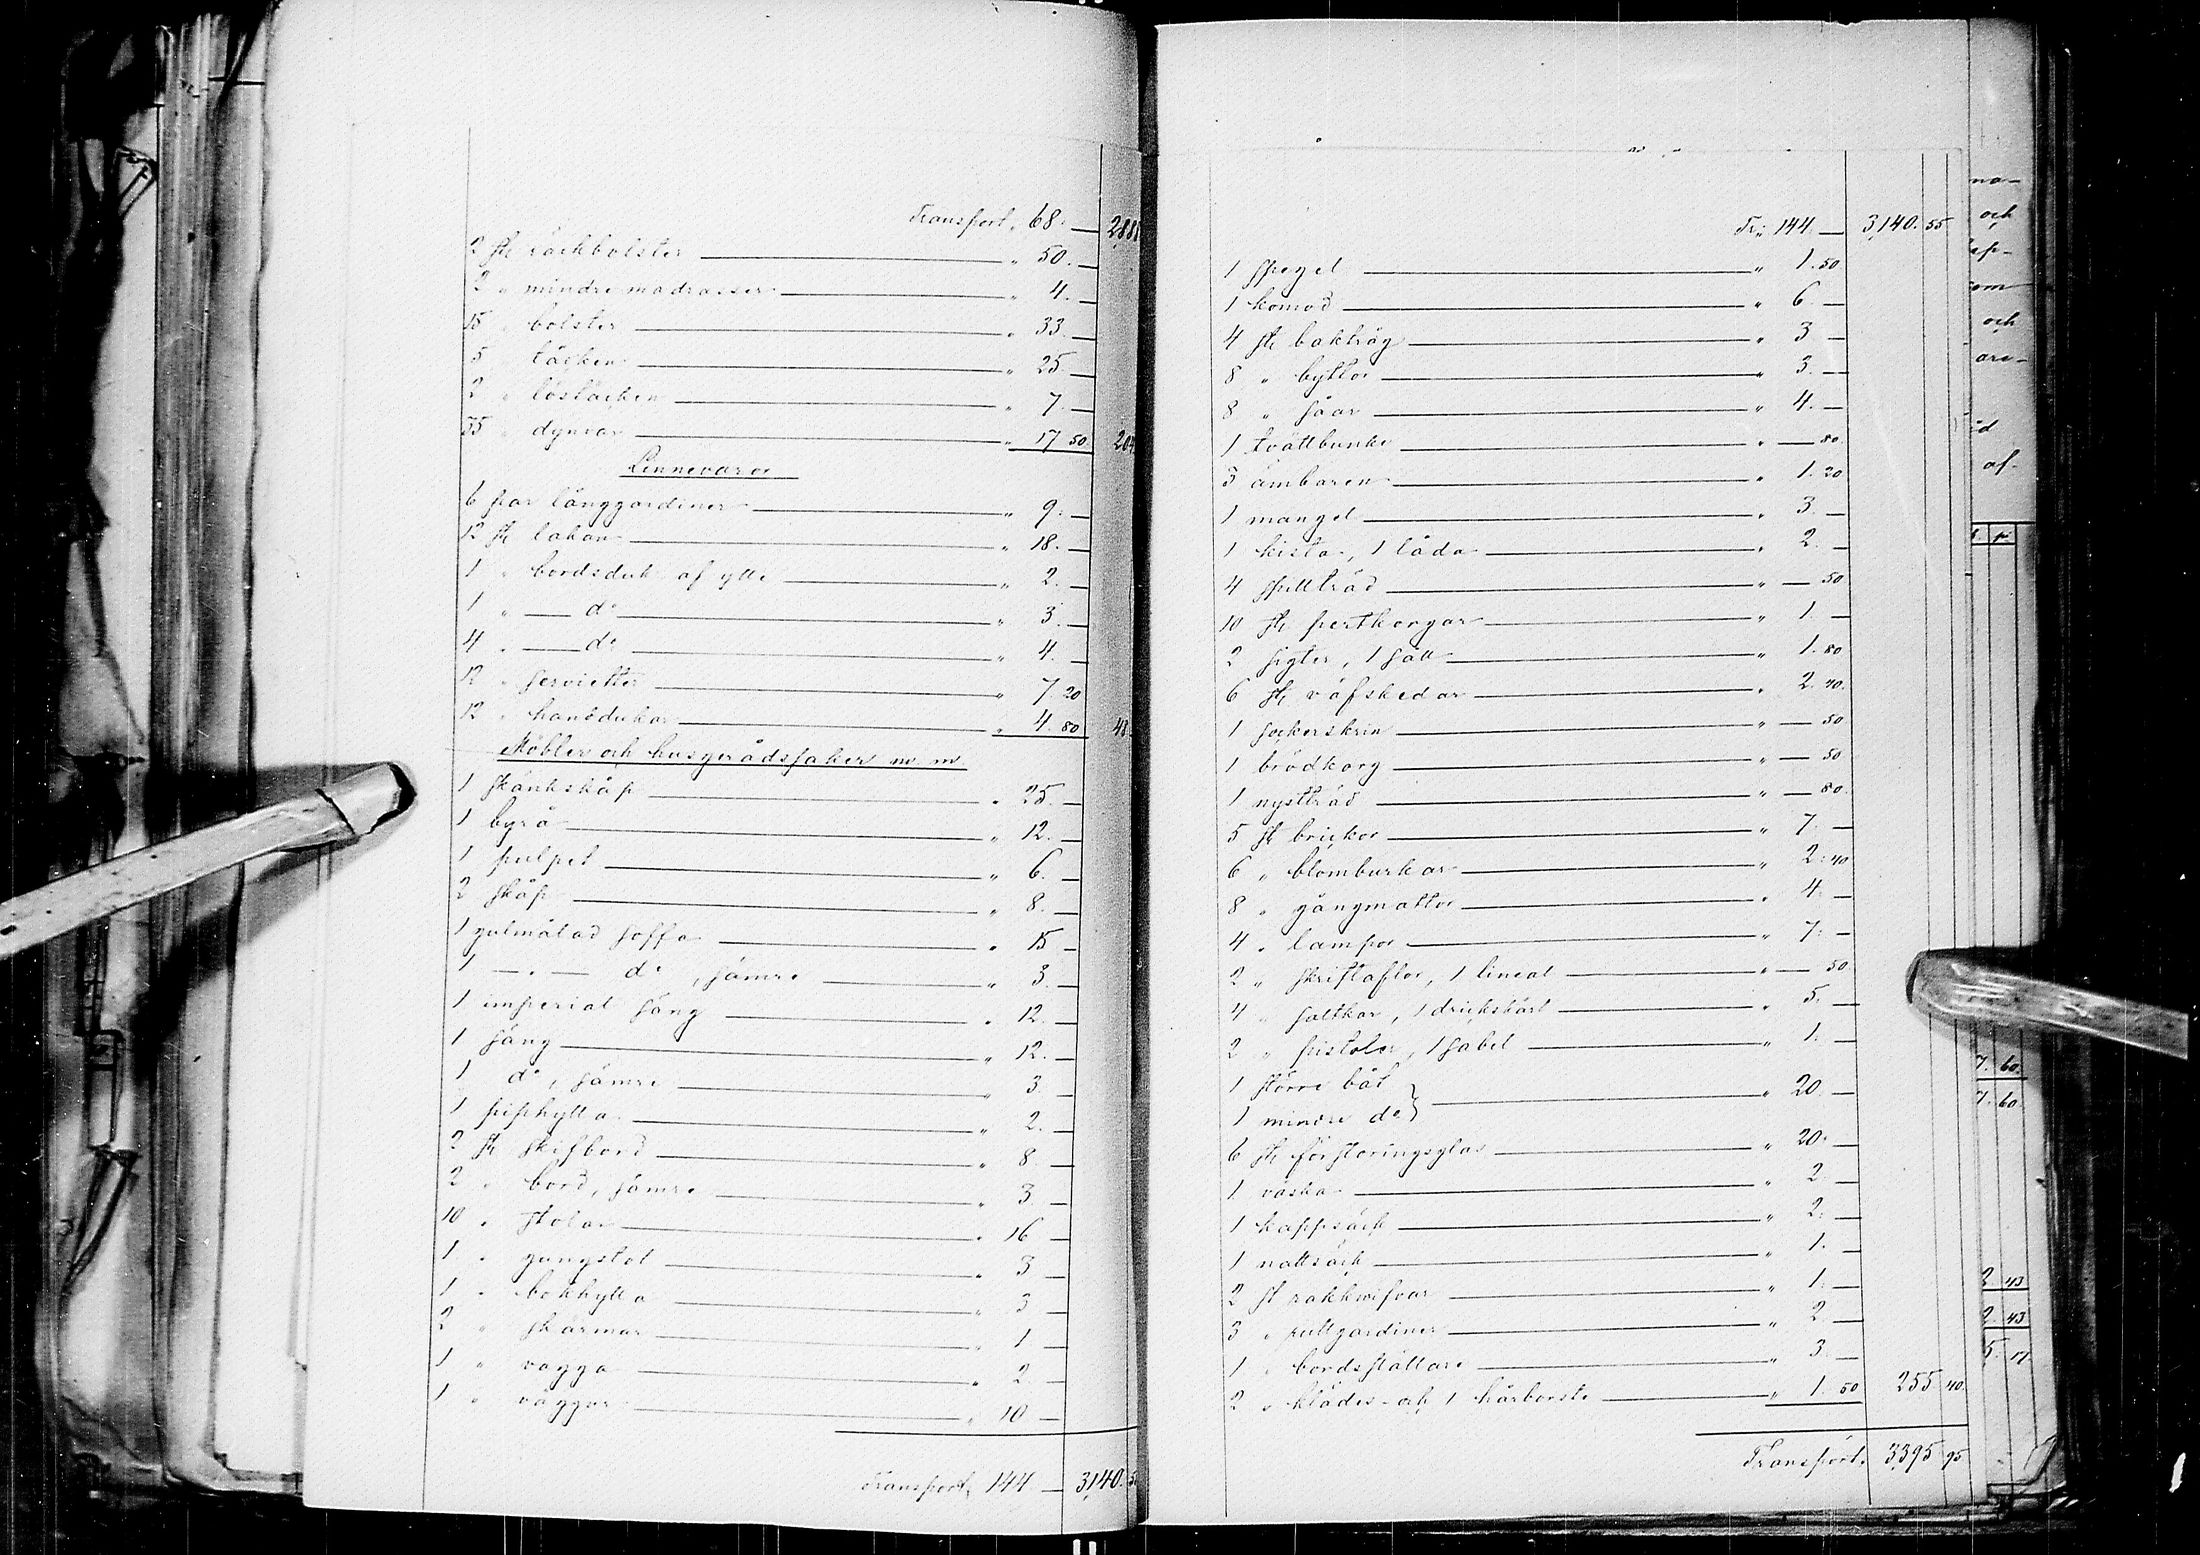 Transport „ 68. — 2,88
2 st räckbolster — „ 50. —
2 „ mindre madrasser — „ 4. —
15 „ bolster — „ 33. —
5 „ täcken — „ 25. —
2 „ löstäcken — „ 7. —
35 „ dynvar — „ 17 50. 204
Linnevaror
6 par långgardiner — „ 9. —
12 st lakan — „ 18. —
1 „ bordsduk af ylle — „ 2. —
1 „ — do — „ 3. —
4 „ — do — „ 4. —
12 „ servietter — „ 7. 20
12 „ handdukar — „ 4. 80 48
Möbler och husgerådssaker m. m.
1 skänkskåp — „ 25. —
1 byrå — „ 12. —
1 pulpet — „ 6. —
2 skåp — „ 8. —
1 gulmålad soffa — „ 15 —
1 — „ — do, sämre — „ 3. —
1 imperial säng — „ 12. —
1 säng — „ 12. —
1 do, sämre — „ 3. —
1 piphylla — „ 2. —
2 st skifbord — „ 8. —
2 „ bord, sämre — „ 3. —
10 „ stolar — „ 16 —
1 „ gungstol — „ 3 —
1 „ bokhylla — „ 3 —
2 „ skärmar — „ 1 —
1 „ vagga — „ 2 —
1 „ väggur — „ 10 —
Transport, 144 — 3,140.5
Tr: 144. — 3,140. 55
1 spegel — „ 1. 50
1 komod — „ 6 —
4 st baktråg — „ 3 —
8 „ byttor — „ 3. —
8 „ såar — „ 4. —
1 tvättbunke — „ — 80
3 ämbaren — „ 1. 20
1 mangel — „ 3. —
1 kista, 1 låda — „ 2. —
4 spillträd — „ — 50
10 st pertkorgar — „ 1. —
2 sigter, 1 såll — „ 1. 80
6 st väfskedar — „ 2. 40.
1 sockerskrin — „ — 50
1 brödkorg — „ — 50
1 nystträd — „ — 80.
5 st brickor — „ 7. —
6 „ blomburkar — „ 2. 40
8 „ gångmattor — „ 4. —
4 „ lampor — „ 7. —
2 „ skriftaflor, 1 lineal — „ — 50
4 „ saltkar, 1 drickskärl — „ 5. —
2 „ pistoler, 1 sabel — „ 1. —
1 större båt
1 mindre do } — „ 20. —
6 st förstoringsglas — „ 20. —
1 väska — „ 2. —
1 kappsäck — „ 2. —
1 nattsäck — „ 1. —
2 st rakknifvar — „ 1. —
3 „ rullgardiner — „ 2 —
1 „ bordställare — „ 3. —
2 „ klädes- och 1 hårborste — „ 1. 50 255 40.
Transport. 3,395 95
na-
och
ep-
om
och
are-
id
af.
7. 60.
7. 60.
2. 43
2. 43
5. 17